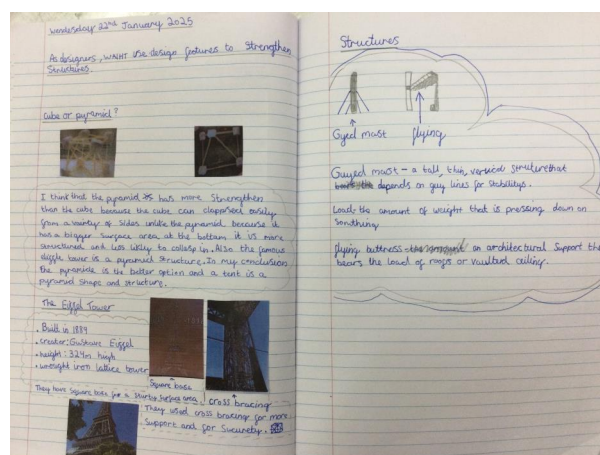 Wendesday 22nd January 2025
As designers, WALHT use design features to Strengthen
Structures.
Cube or pyramid?
I think that the pyramid has more Strengthen
than the cube because the cube can clapsed easily
from a vairity of Sides unlike the pyramid, because it
has a bigger Surface area, at the bottom it is more
structured and less likely to collasp in. Also the famous
eiffle tower is a pyramid structure. In my conclusion
the pyramids is the better option and a tent is a
pyramid Shape and structure.
The Eiffel Tower
• Built in 1889
• creator: Gustave Eiffel
• height: 324m high
• wrought iron lattice tower
Square base
cross bracing
They have Square bate for a Sturby Surface area
They used cross bracing for more
Support and for Sucurety.
Structures
Gyed mast
flying
Guyed mast – a tall, thin, vertical structure that
depends on guy lines for stabilitys.
Load: the amount of weight that is pressing down on
Somthing
flying buttness an architectural Support the
bears the load of roofs or vaulted ceiling.